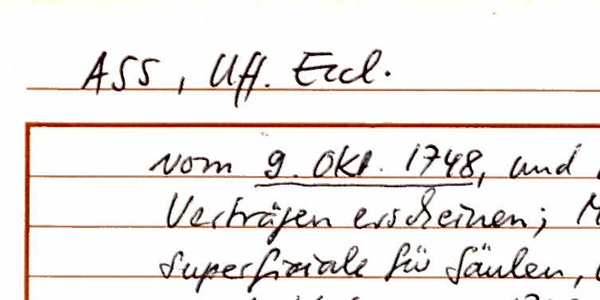 ASS, Uff. Eccl.
vom 9. Okt. 1748, und
Verträgen erscheinen;
Superfiziale für Säulen,